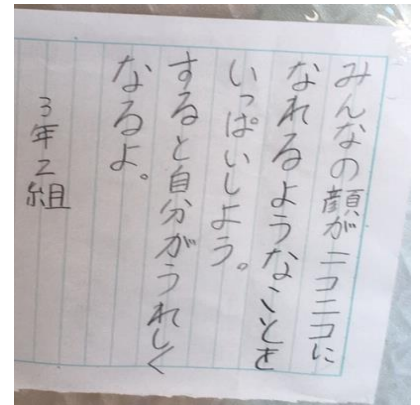 みんなの顔がニコニコに
なれるようなことを
いっぱいしよう。
すると自分がうれしく
なるよ。
3年2組